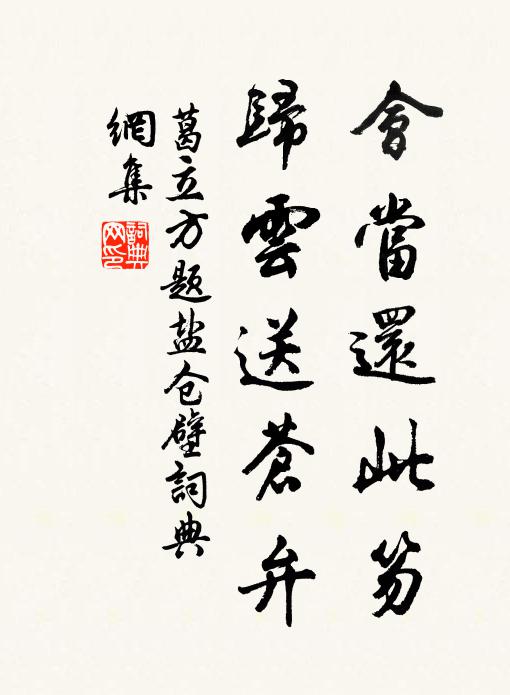 會當還此笏
歸雲送蒼弁
葛立方题盐仓壁詞典
網集
詞典
网印